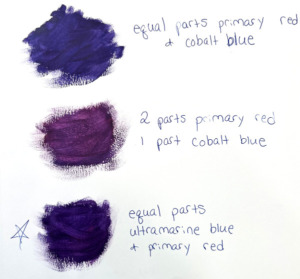 equal parts primary red
+ cobalt blue
2 parts primary red
1 part cobalt blue
equal parts
ultramarine blue
+ primary red